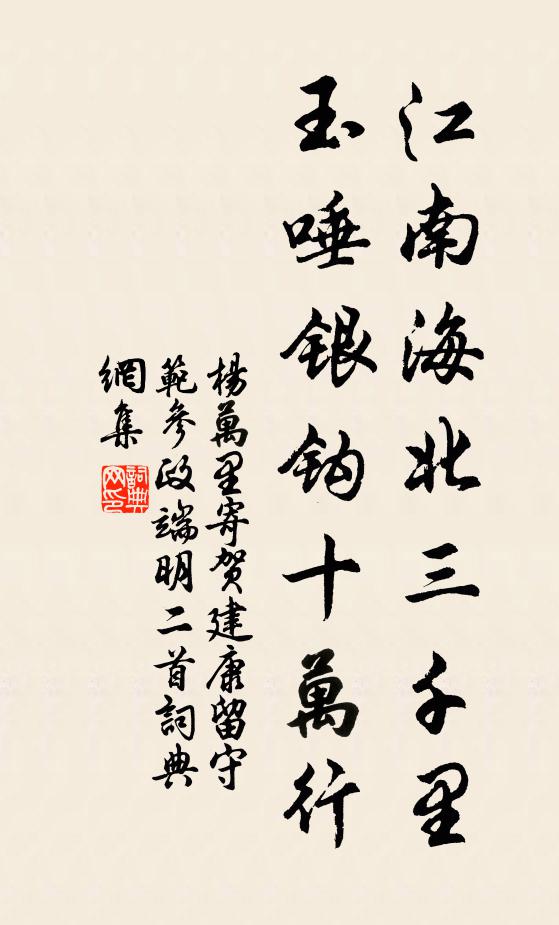 江南海北三千里
玉唾銀鈎十萬行
楊萬里寄賀建康留守
範參政端明二首詞典
網集
詞典
网印